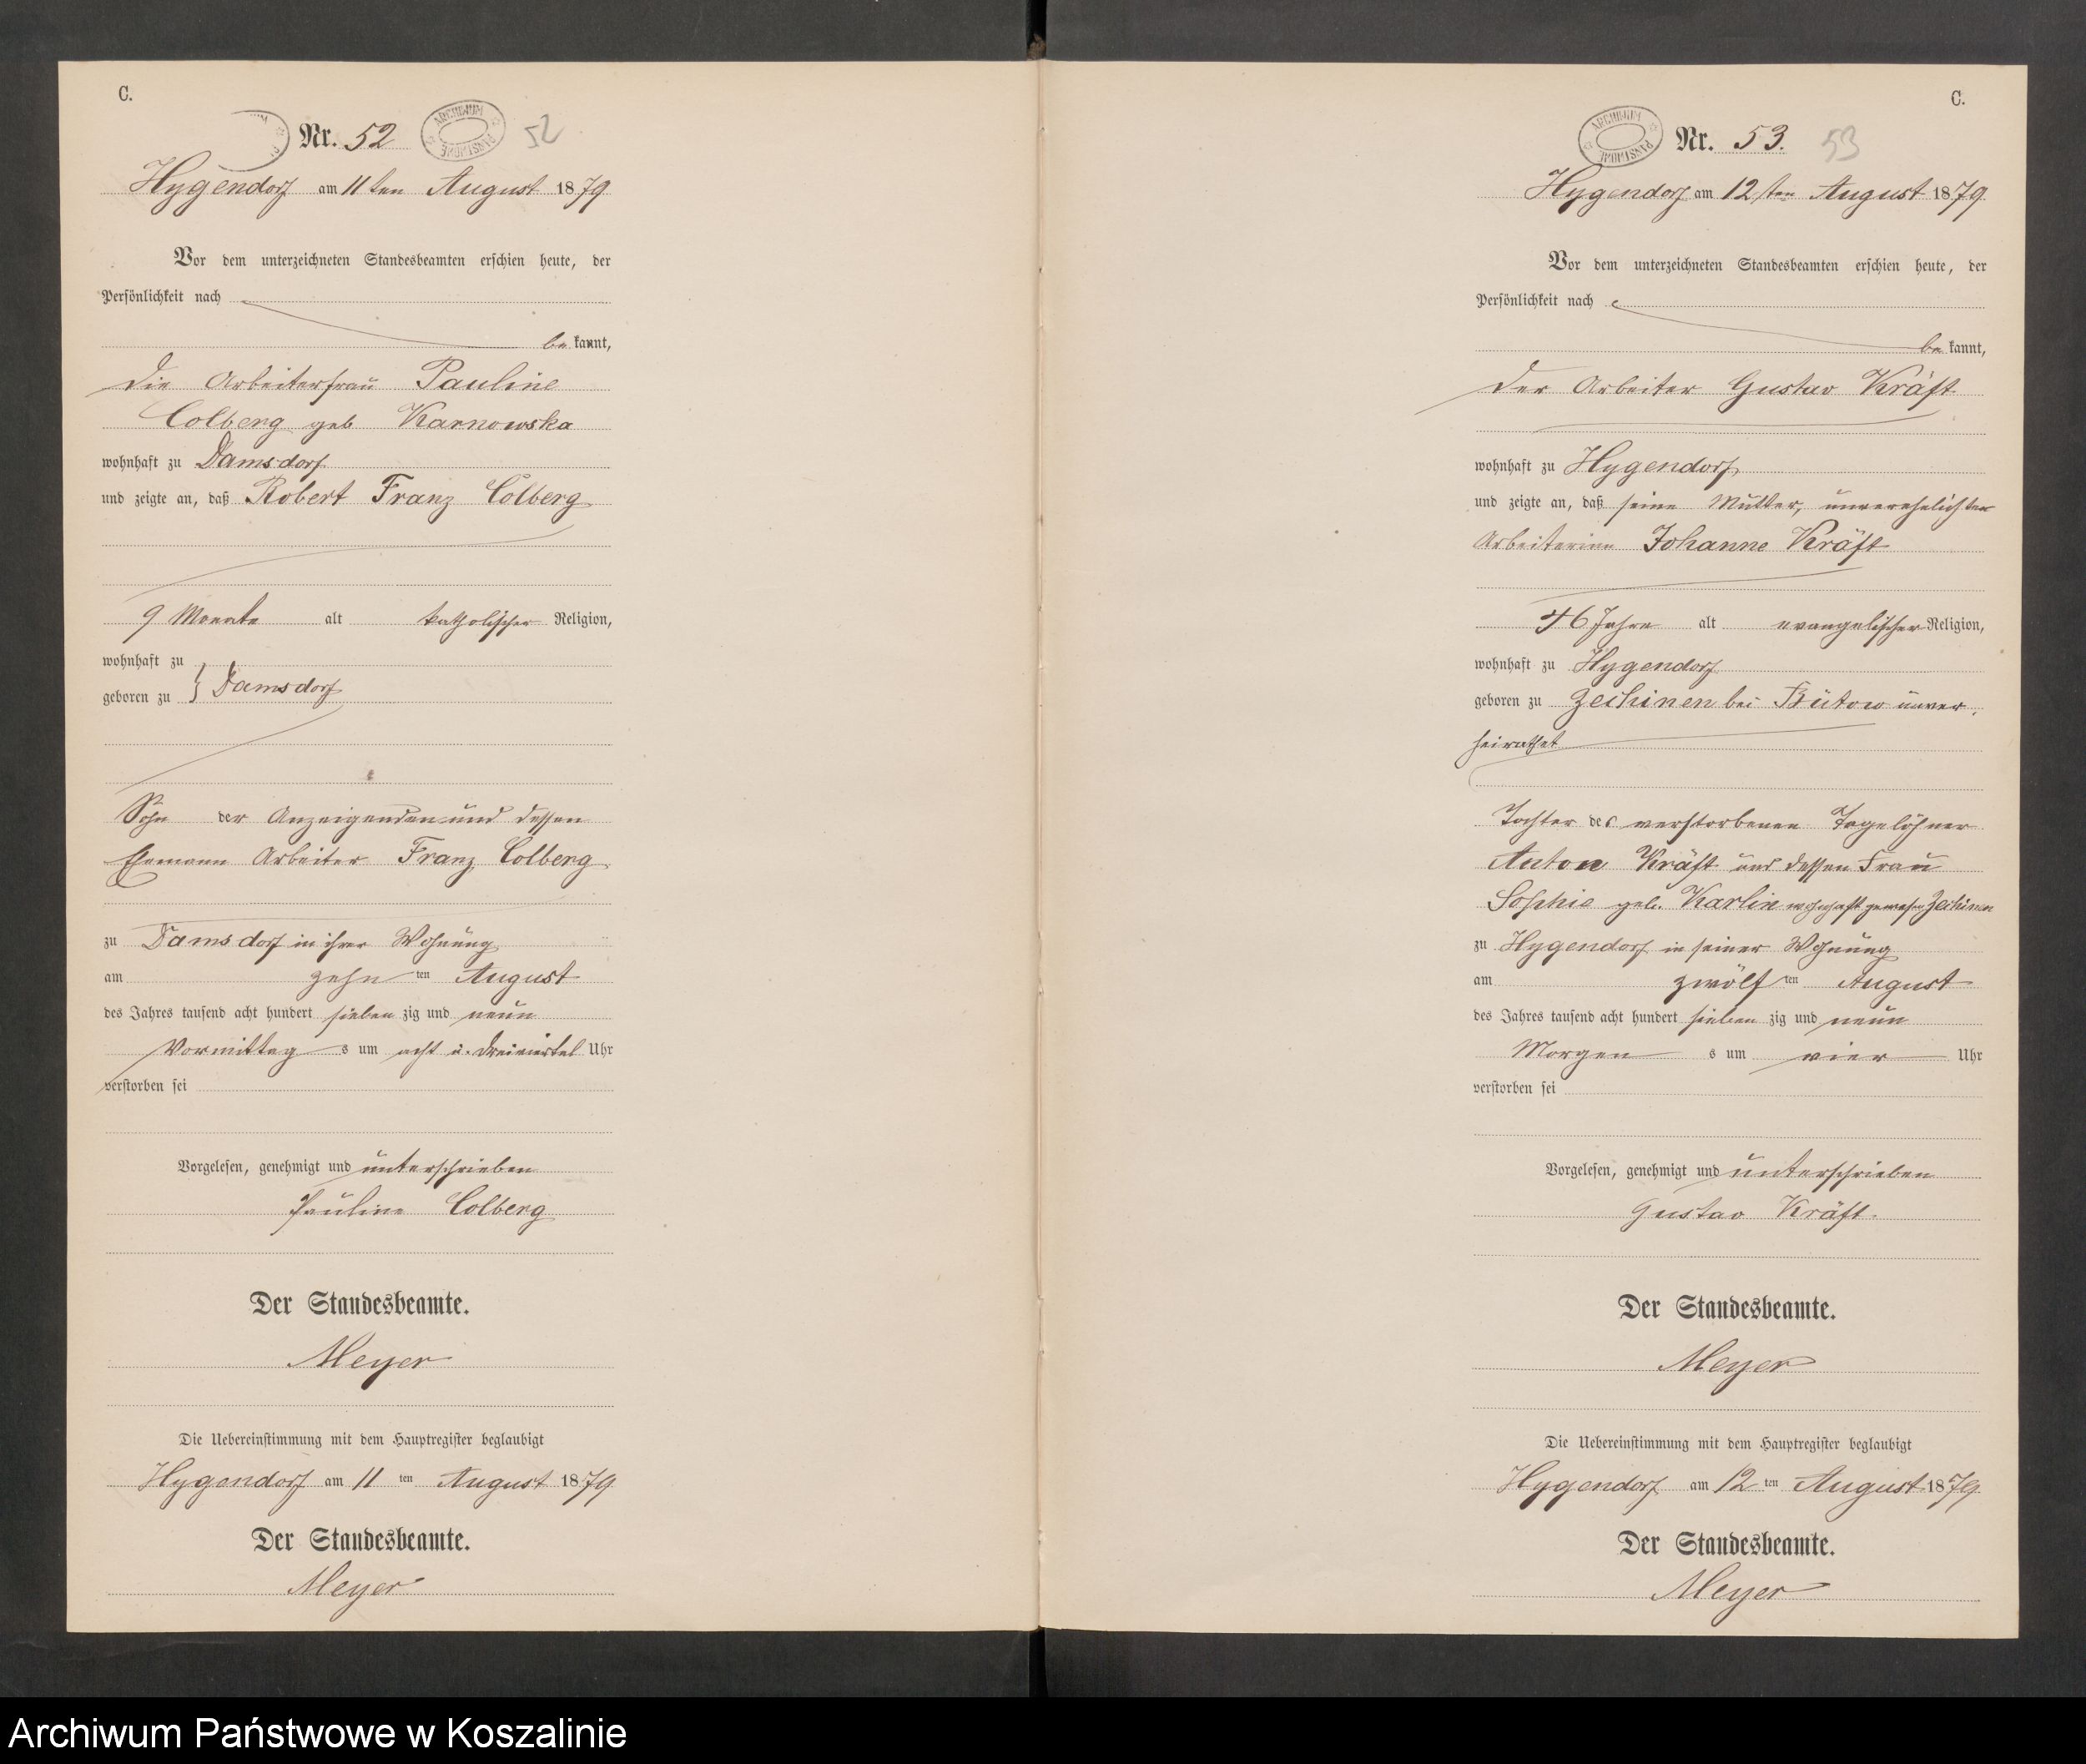 C.
Nr. 52
ARCHIWUM PAŃSTWOWE
52
Hygendorf am 11ten August 1879
Vor dem unterzeichneten Standesbeamten erschien heute, der
Persönlichkeit nach
be kannt,
die Arbeiterfrau Pauline
Colberg geb Karnowska
wohnhaft zu Damsdorf
und zeigte an, daß Robert Franz Colberg
9 Monate alt katholischer Religion,
wohnhaft zu
geboren zu } Damsdorf
Sohn der Anzeigenden und dessen
Ehemann Arbeiter Franz Colberg
zu Damsdorf in ihrer Wohnung
am zehn ten August
des Jahres tausend acht hundert sieben zig und neun
Vormittag s um acht u. dreiviertel Uhr
verstorben sei
Vorgelesen, genehmigt und unterschrieben
Pauline Colberg
Der Standesbeamte.
Meyer
Die Uebereinstimmung mit dem Hauptregister beglaubigt
Hygendorf am 11 ten August 1879
Der Standesbeamte.
Meyer
C.
ARCHIWUM PAŃSTWOWE
Nr. 53.
53
Hygendorf am 12ten August 1879
Vor dem unterzeichneten Standesbeamten erschien heute, der
Persönlichkeit nach
be kannt,
der Arbeiter Gustav Kräft
wohnhaft zu Hygendorf
und zeigte an, daß seine Mutter, unverehelichten
Arbeiterinn Johanne Kräft
46 Jahre alt evangelischer Religion,
wohnhaft zu Hygendorf
geboren zu Zechinen bei Bütow unver
heirathet
Tochter des verstorbenen Tagelöhner
Anton Kräft und dessen Frau
Sophie geb. Karlin wohnhaft gewesen Zechinen
zu Hygendorf in seiner Wohnung
am zwölf ten August
des Jahres tausend acht hundert sieben zig und neun
Morgen s um vier Uhr
verstorben sei
Vorgelesen, genehmigt und unterschrieben
Gustav Kräft.
Der Standesbeamte.
Meyer
Die Uebereinstimmung mit dem Hauptregister beglaubigt
Hygendorf am 12 ten August 1879
Der Standesbeamte.
Meyer
Archiwum Państwowe w Koszalinie